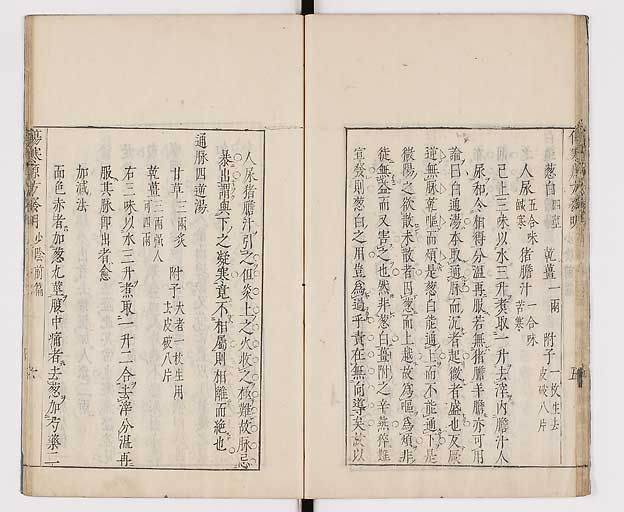 葱白四莖 乾薑一兩 附子一枚生去皮破八片
人尿五合味鹹寒 猪膽汁一合味苦寒
已上三味以水三升煮取一升去滓内膽汁人
尿和令相得分溫再服若無猪膽羊膽亦可用
論曰白通湯本取通脉而沉者起微者盛也反厥
逆無脉乾嘔而煩是葱白能通上而不能通下是
微陽之欲散未散者因葱而上越故爲嘔爲煩非
徒無益而又害之也然非葱白薑附之辛無從
宣發則葱白之用豈爲過乎責在無向導矣故以
人尿猪膽汁引之但炎上之火收之極難故脉忌
暴出謂與下之凝寒竟不相屬則相離而絶也
通脉四逆湯
甘草二兩炙 附子大者一枚生用去皮破八片
乾薑三兩強人可四兩
右三味以水三升煮取一升二合去滓分溫再
服其脉即出者愈
加減法
面色赤者加葱九莖腹中痛者去葱加芍藥二
傷寒原方發明 少陰前篇